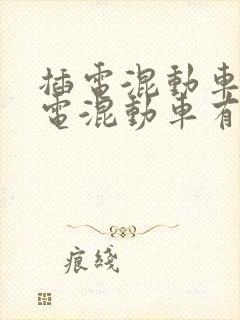 插電混動車
電混動車有
痕綫